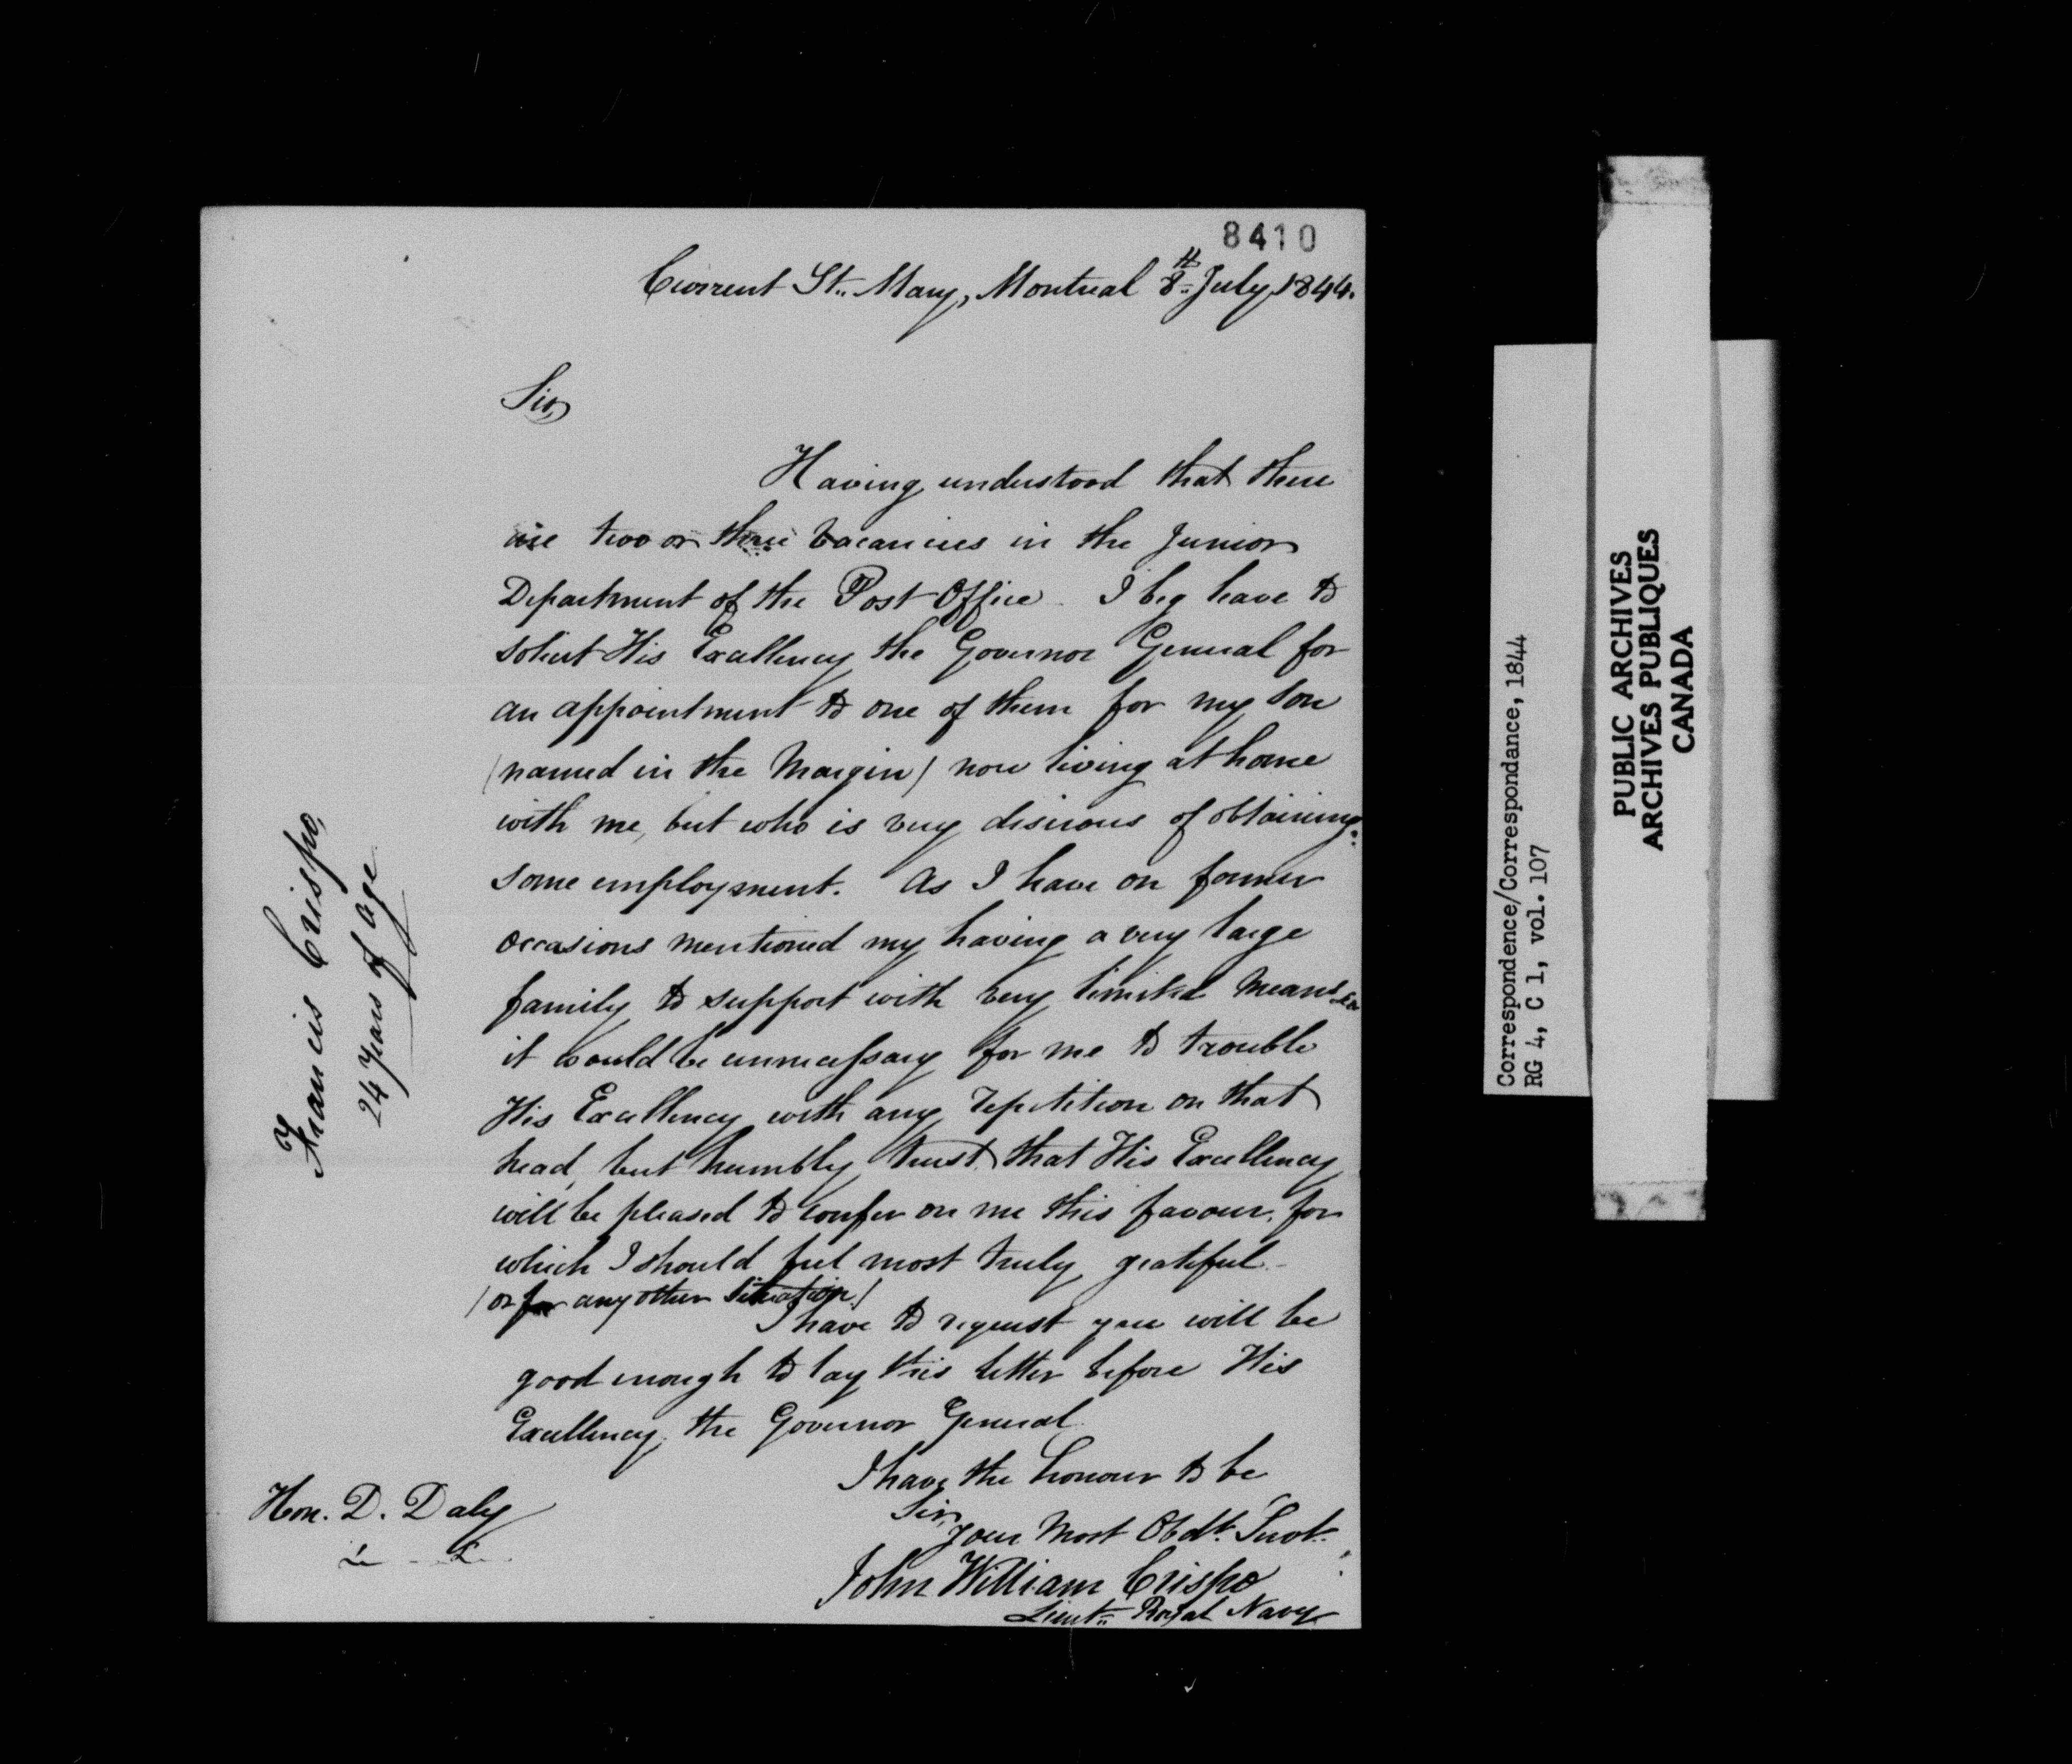 8410
Current St. Mary, Montreal 8th July 1844.
Sir,
Having understood that there
are two or three Vacancies in the Junior
Department of the Post Office. I beg leave to
solicit His Excellency the Governor General for
an appointment to one of them for my Son
(named in the Margin) now living at home
with me, but who is very desirous of obtaining
some employment. As I have on former
occasions mentioned my having a very large
family to support with very limited Means
it would be unnecessary for me to trouble
His Excellency with any repetition on that
head, but humbly trust that His Excellency
will be pleased to confer on me this favour, for
which I should feel most truly grateful.
(or for any other Situation)
I have to request you will be
good enough to lay this letter before His
Excellency, the Governor General.
I have the honour to be
Sir,
Your Most Obdt. Servt.
John William Crispo
Lieut. Royal Navy
Hon. D. Daly
Francis Crispo,
24 Years of age
Correspondence/Correspondance, 1844
RG 4, C 1, vol. 107
PUBLIC ARCHIVES
ARCHIVES PUBLIQUES
CANADA